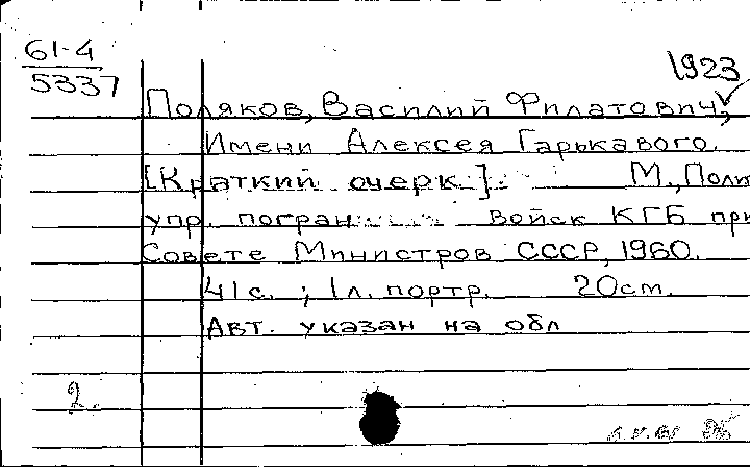 61-4
5337
1923
Поляков, Василий Филатович,
Имени Алексея Гарькавого.
[Краткий очерк]. М., Полит
упр. погран войск КГБ при
Совете Министров СССР, 1960.
41 с. ; 1 л. портр. 20 см.
Авт. указан на обл
2.